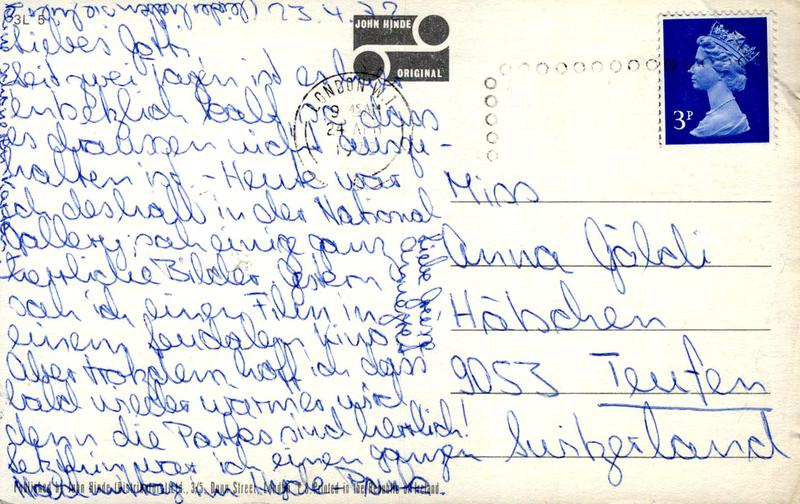 3L 5
23.4.72
JOHN HINDE
ORIGINAL
LONDON W.1
24
3P
Liebes Gotti
Seit zwei Tagen ist es hier
entsetzlich kalt, so dass
es draussen nicht auszu-
halten ist. - Heute war
ich deshalb in der National
Gallery, sah einige ganz
herrliche Bilder. Gestern
sah ich einen Film in
einem feudalen Kino
Aber trotzdem hoff ich dass
bald wieder wärmer wird
denn die Parks sind herrlich!
war ich einen ganzen
Liebe Grüsse
Miss
Anna Göldi
Hötschen
9053 Teufen
Switzerland
Published by John Hinde (Distributors) Ltd., 3/5, Queen Street, London, Printed in the Republic of Ireland.